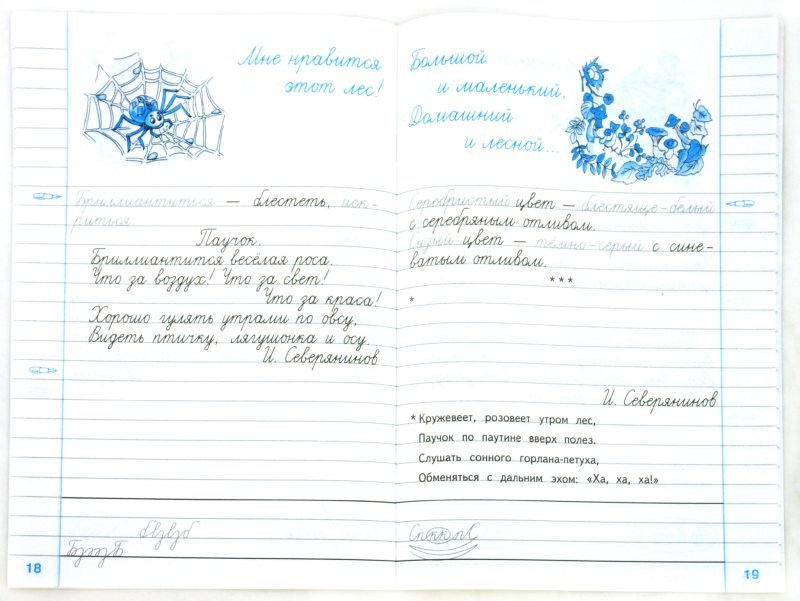 Мне нравится
этот лес!
Бриллиантиться — блестеть, иск-
риться.
Паучок.
Бриллиантится весёлая роса.
Что за воздух! Что за свет!
Что за краса!
Хорошо гулять утрами по овсу,
Видеть птичку, лягушонка и осу.
И. Северянинов
бзвзб
БзэзБ
18
Большой
и маленький,
Домашний
и лесной...
Серебристый цвет — блестяще-белый
с серебряным отливом.
Сизый цвет — тёмно-серый с сине-
ватым отливом.
***
*
И. Северянинов
* Кружевеет, розовеет утром лес,
Паучок по паутине вверх полез.
Слушать сонного горлана-петуха,
Обменяться с дальним эхом: «Ха, ха, ха!»
19